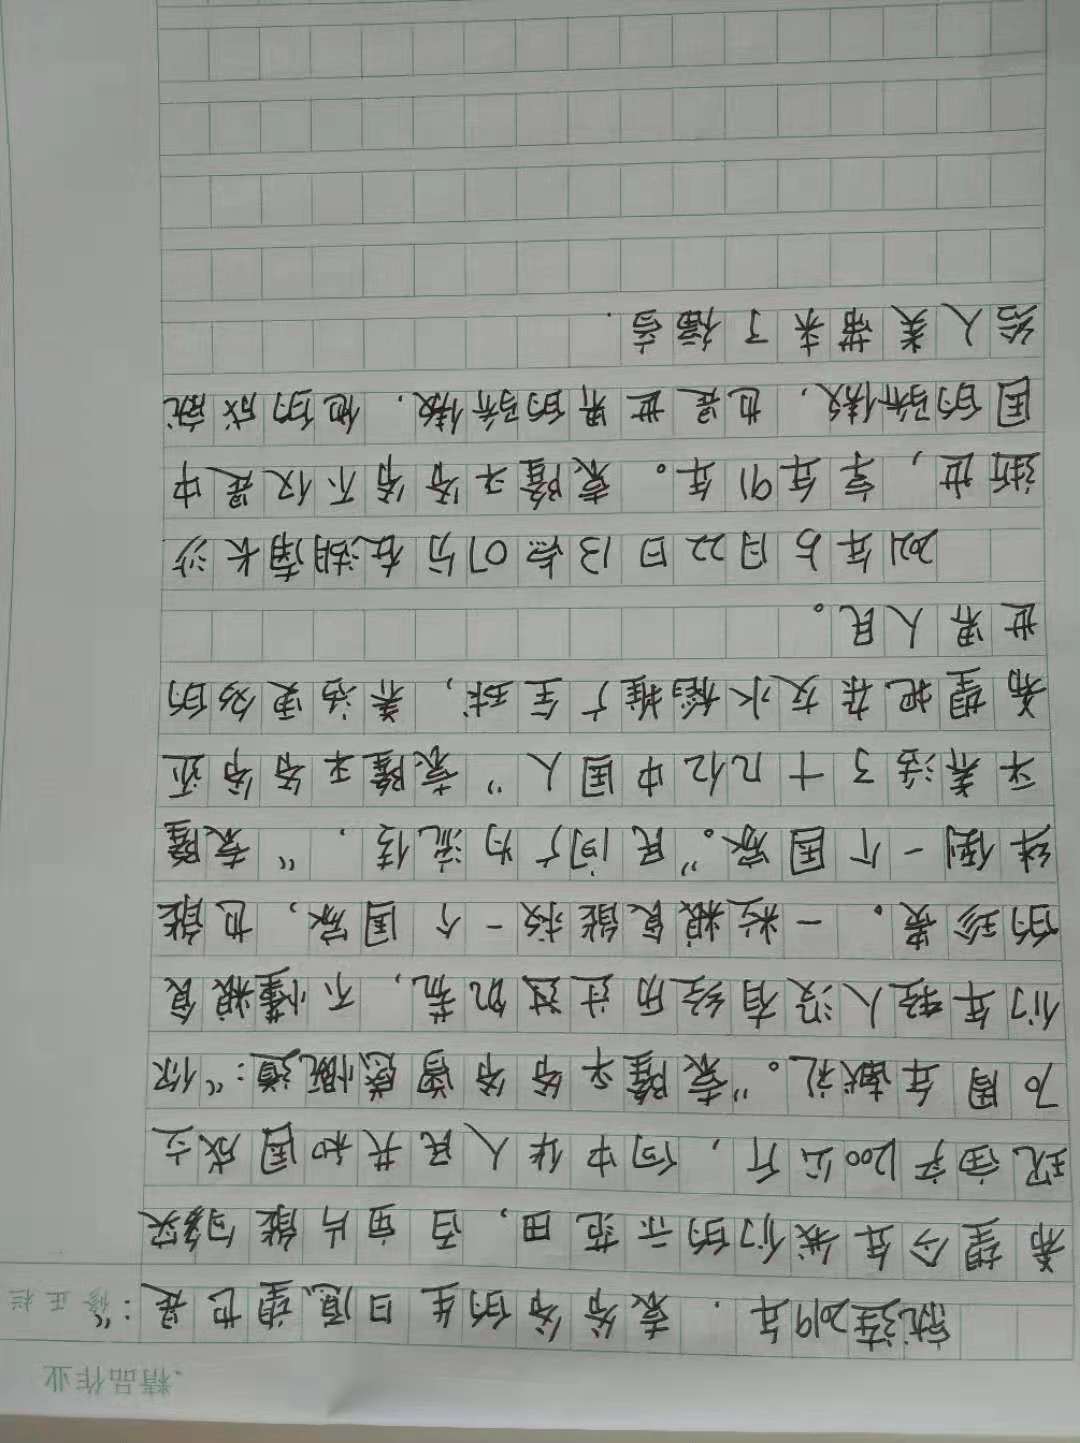 精品作业
修正栏
就连2019年.袁爷爷的生日愿望也是：“
希望今年我们的示范田，百亩片能够实
现亩产1200公斤，向中华人民共和国成立
70周年献礼。”袁隆平爷爷曾感慨道：“你
们年轻人没有经历过过饥荒，不懂粮食
的珍贵。一粒粮食能救一个国家，也能
绊倒一个国家。”民间广为流传，“袁隆
平养活了十几亿中国人”袁隆平爷爷还
希望把杂交水稻推广全球，养活更多的
世界人民。
2021年5月22日13点07分在湖南长沙
逝世，享年91年。袁隆平爷爷不仅是中
国的骄傲，也是世界的骄傲．他的成就
给人类带来了福音．